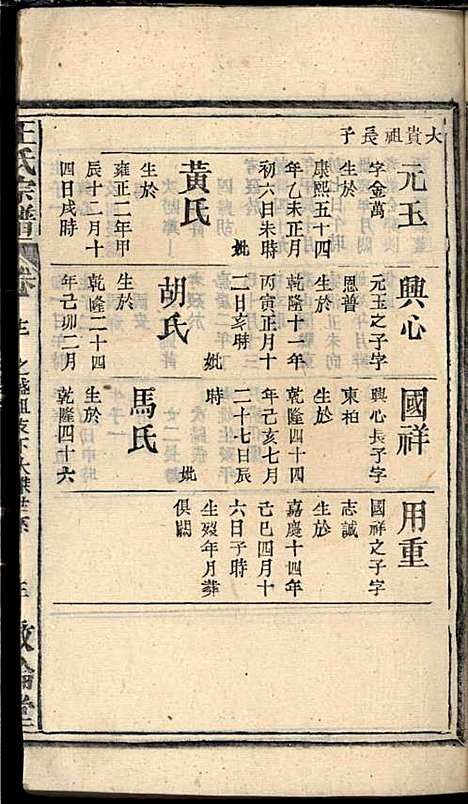 大貴祖長子
元玉
字金萬
生於
康熙五十四
年乙未正月
初六日未時
妣
黃氏
生於
雍正二年甲
辰十二月十
四日戌時
興心
元玉之子字
恩普
生於
乾隆十一年
丙寅正月十
二日亥時
妣
胡氏
生於
乾隆二十四
年己卯二月
國祥
興心長子字
東柏
生於
乾隆四十四
年己亥七月
二十七日辰
時
妣
馬氏
生於
乾隆四十六
用重
國祥之子字
志誠
生於
嘉慶十四年
己巳四月十
六日子時
生歿年月葬
俱闕
王氏宗譜